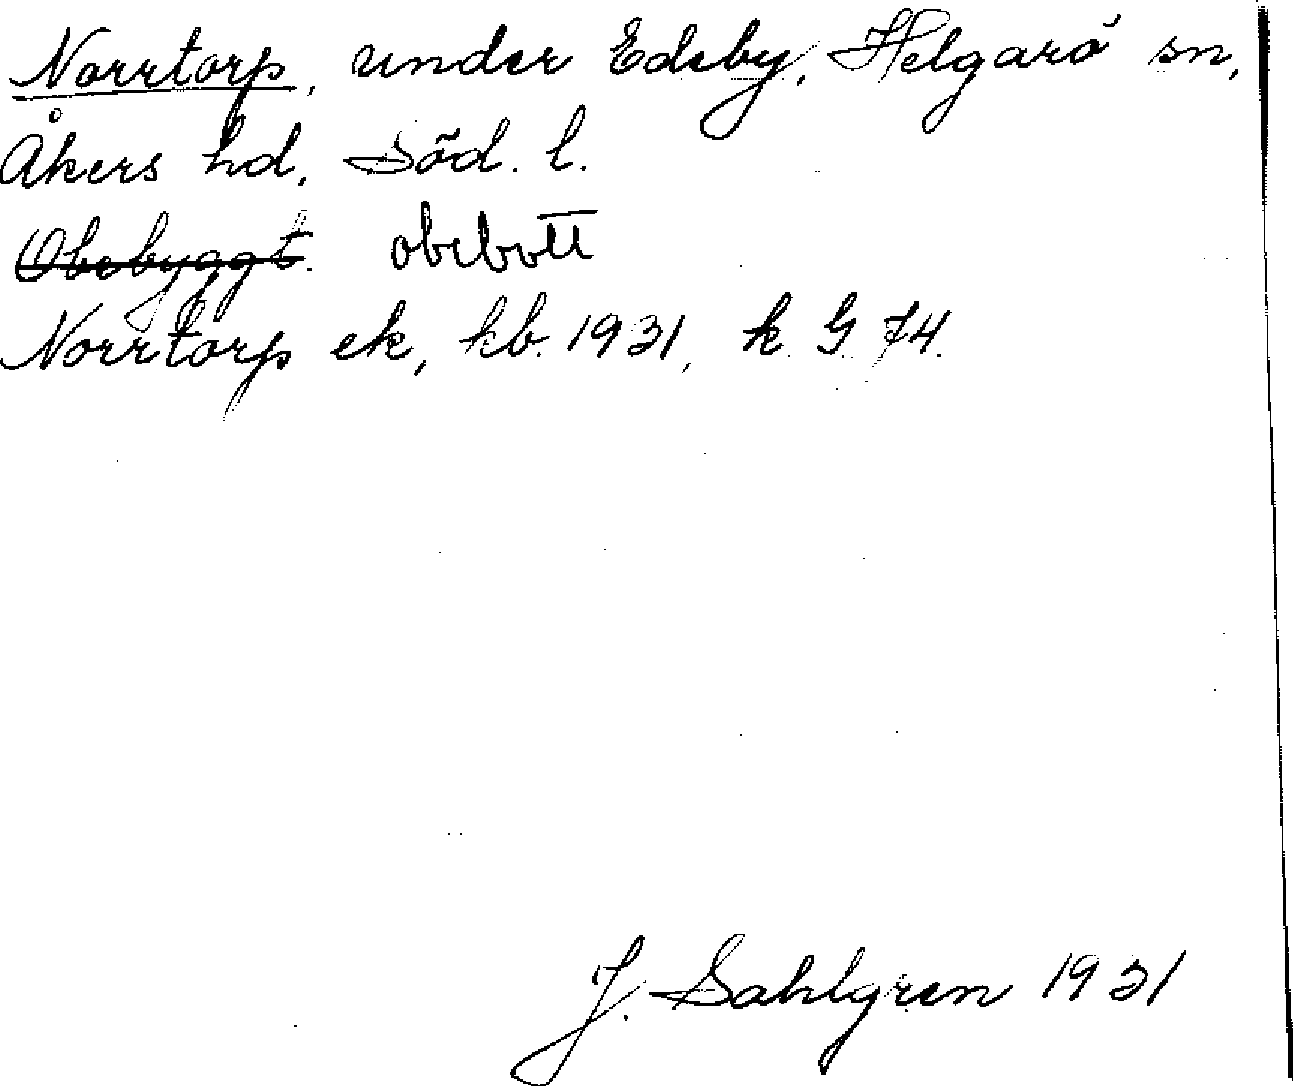 Norrtorp, under Edeby, Helgarö sn,
Åkers hd, Söd. l.
Obebyggt. obebott
Norrtorp ek, kb. 1931, k. G. 74.
J. Sahlgren 1931